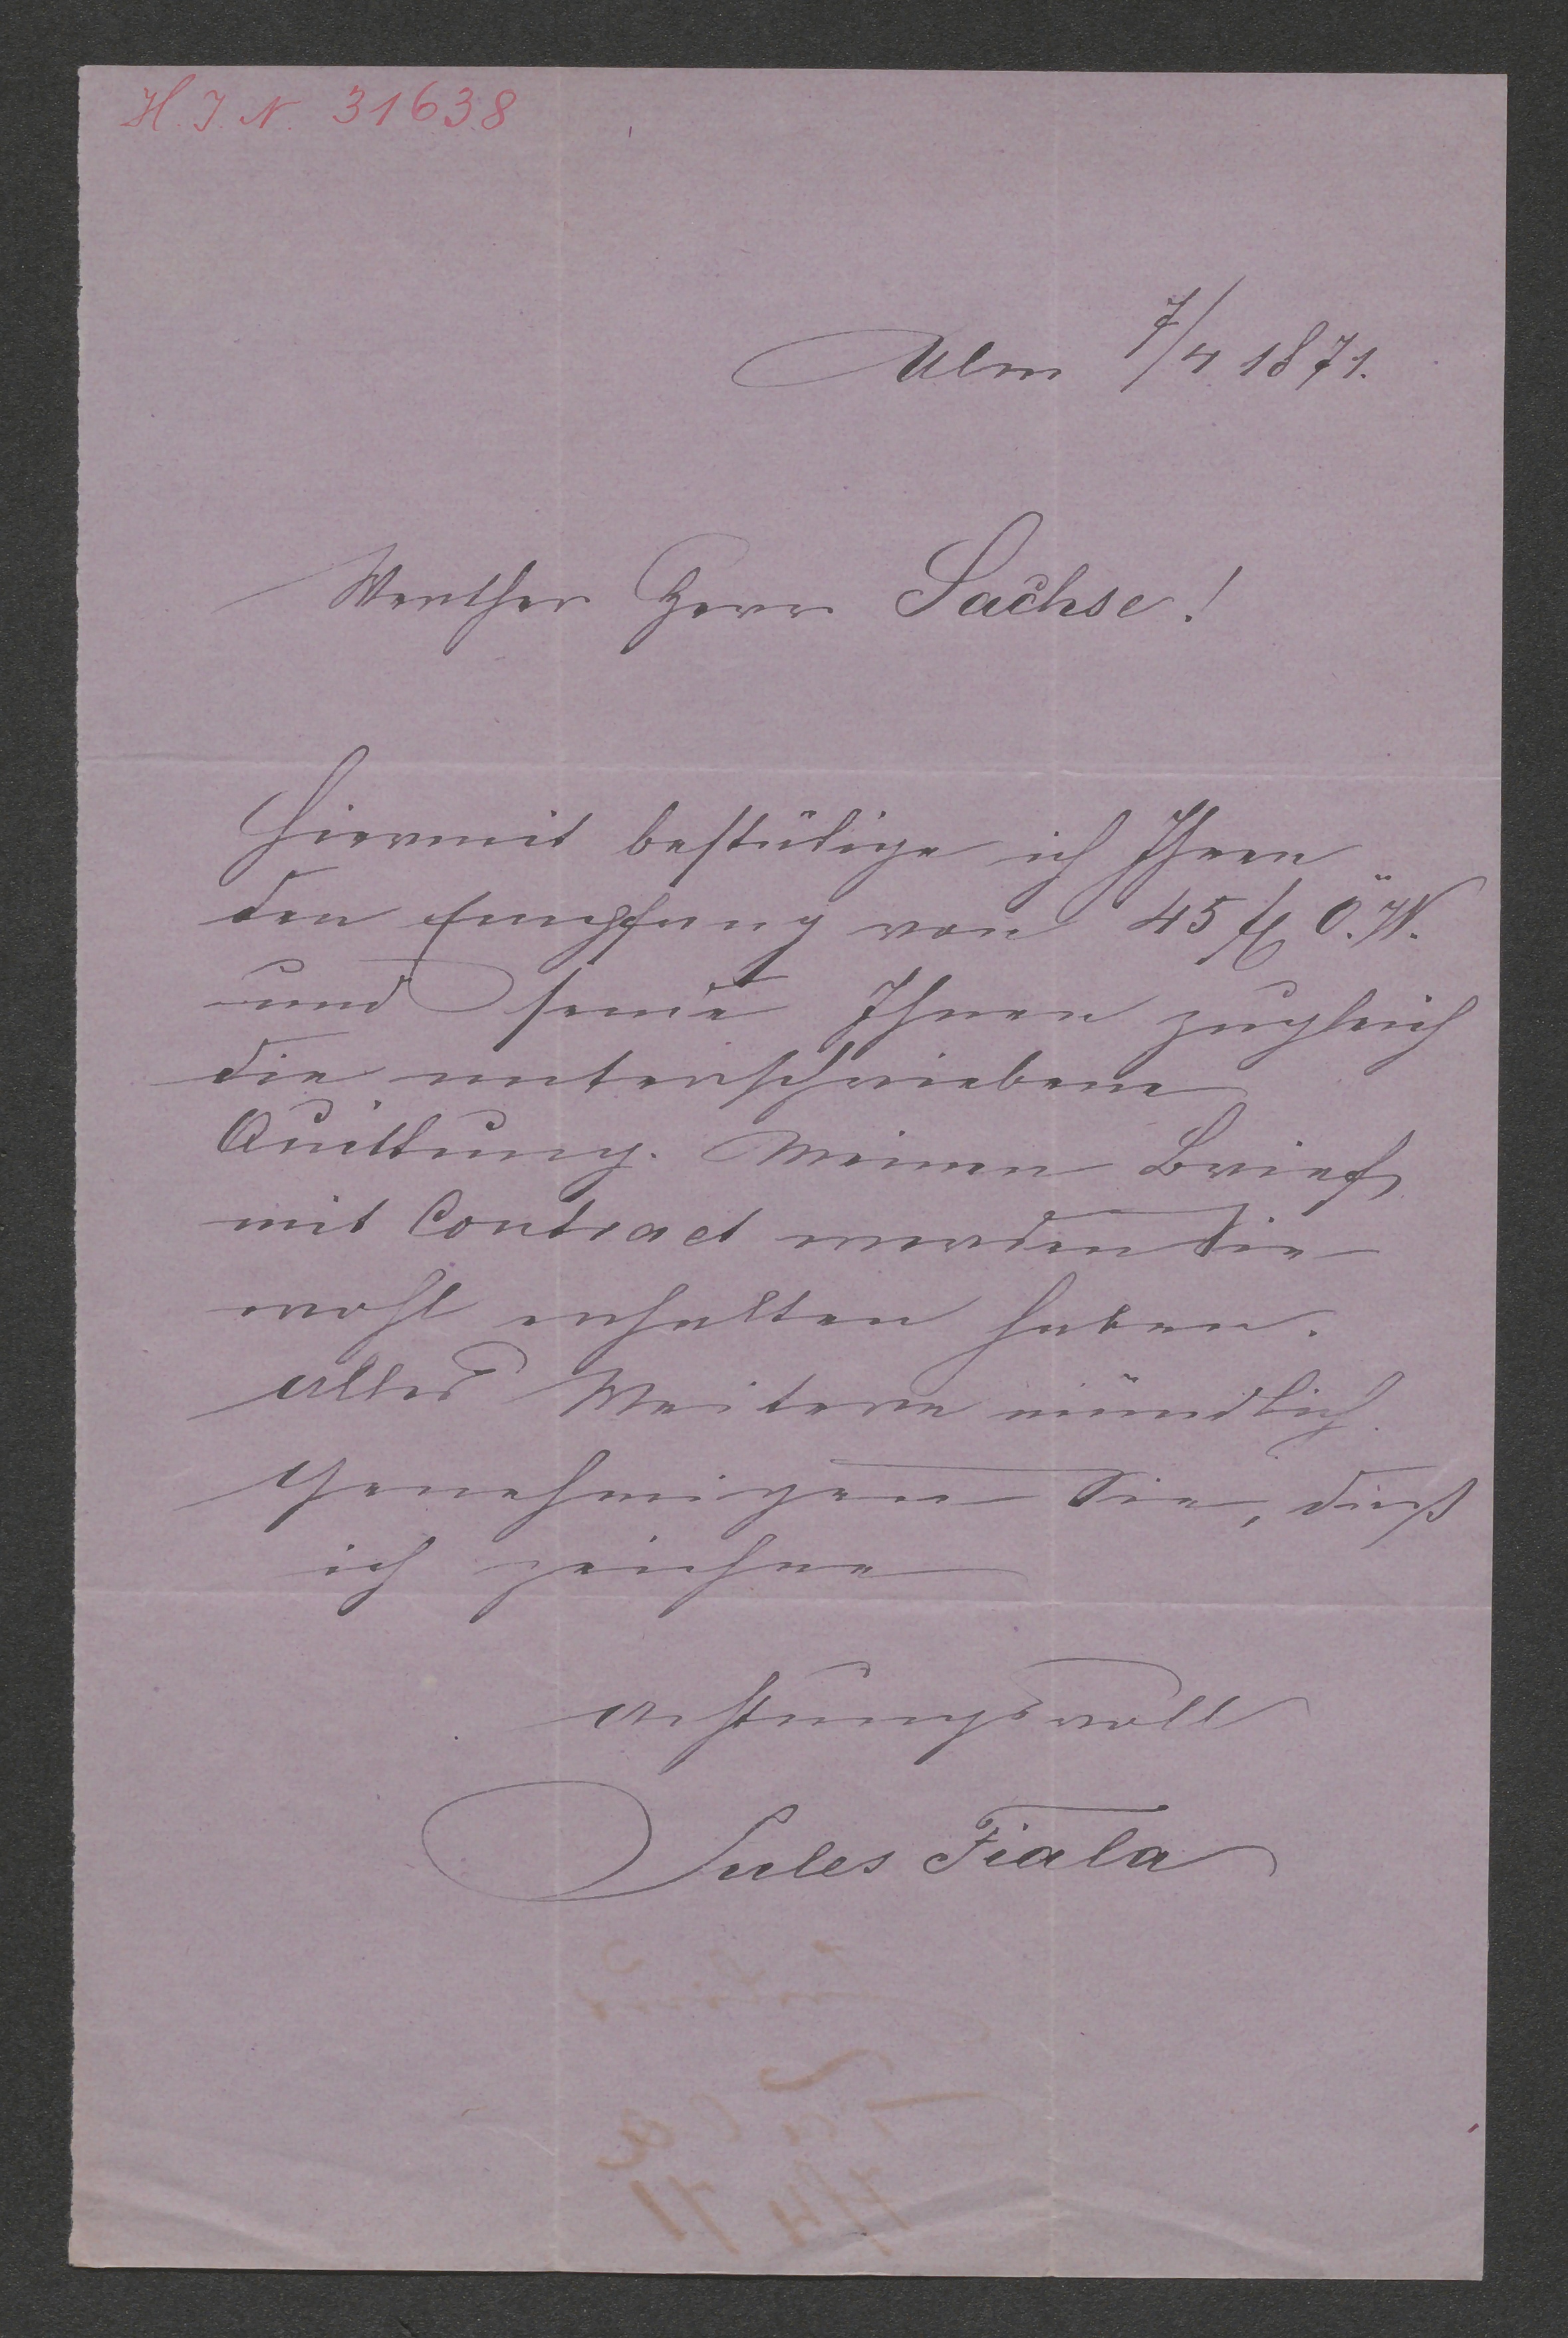 H. J. N. 31638
Ulm 7/4 1871.
Werther Herr Sachse!
Hiermit bestätige ich Ihnen
den Empfang von 45 fl Ö. W.
und sende Ihnen zugleich
die unterschriebene
Quittung. Meinen Brief
mit Contract werden Sie
wohl erhalten haben.
Alles Weitere mündlich.
Genehmigen Sie, daß
ich zeichne
Achtungsvoll
Jules Fiala